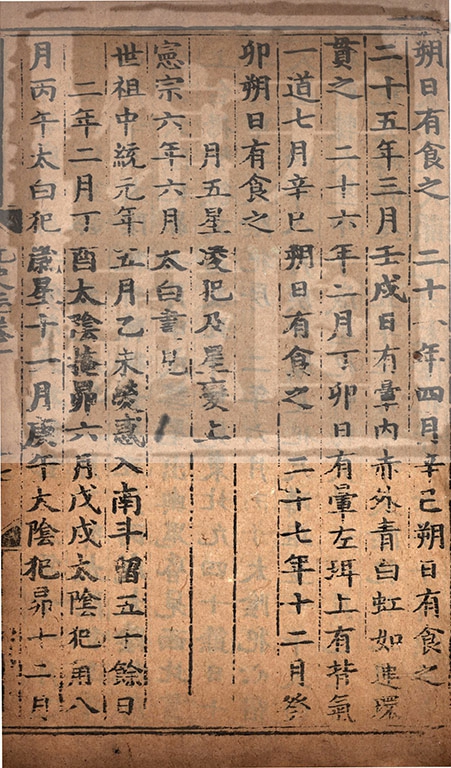 朔日有食之 二十年四月辛巳朔日有食之
二十五年三月壬戌日有暈內赤外青白虹如連環
貫之 二十六年二月丁卯日有暈左珥上有背氣
一道七月辛巳朔日有食之 二十七年十二月癸
卯朔日有食之
月五星凌犯及星變上
憲宗六年六月太白晝見
世祖中統元年五月乙未熒惑入南斗留五十餘日
二年二月丁酉太陰掩昴六月戊戌太陰犯角八
月丙午太白犯歲星十一月庚午太陰犯昴十二月